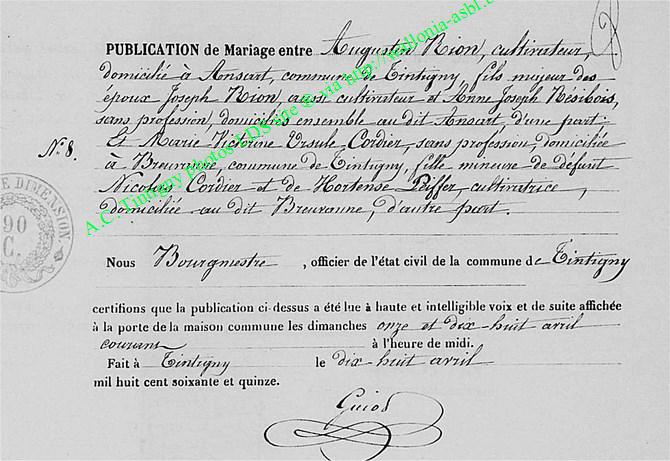 2
PUBLICATION de Mariage entre Augustin Rion, cultivateur,
domicilié à Ansart, commune de Tintigny fils majeur des
époux Joseph Rion, aussi cultivateur et Anne Joseph Résibois,
sans profession, domiciliés ensemble au dit Ansart, d'une part:
N° 8.
Et Marie Victorine Ursule Cordier, sans profession, domiciliée
à Breuvanne, commune de Tintigny, fille mineure de défunt
Nicolas Cordier et de Hortense Peiffer, cultivatrice,
domiciliée au dit Breuvanne, d'autre part.
A.C. Tintigny photos LDS site @ via http://wallonia-asbl.
E DIMENSION.
90
C.
Nous Bourgmestre, officier de l'état civil de la commune de Tintigny
certifions que la publication ci-dessus a été lue à haute et intelligible voix et de suite affichée
à la porte de la maison commune les dimanches onze et dix-huit avril
courant à l'heure de midi.
Fait à Tintigny le dix-huit avril
mil huit cent soixante et quinze.